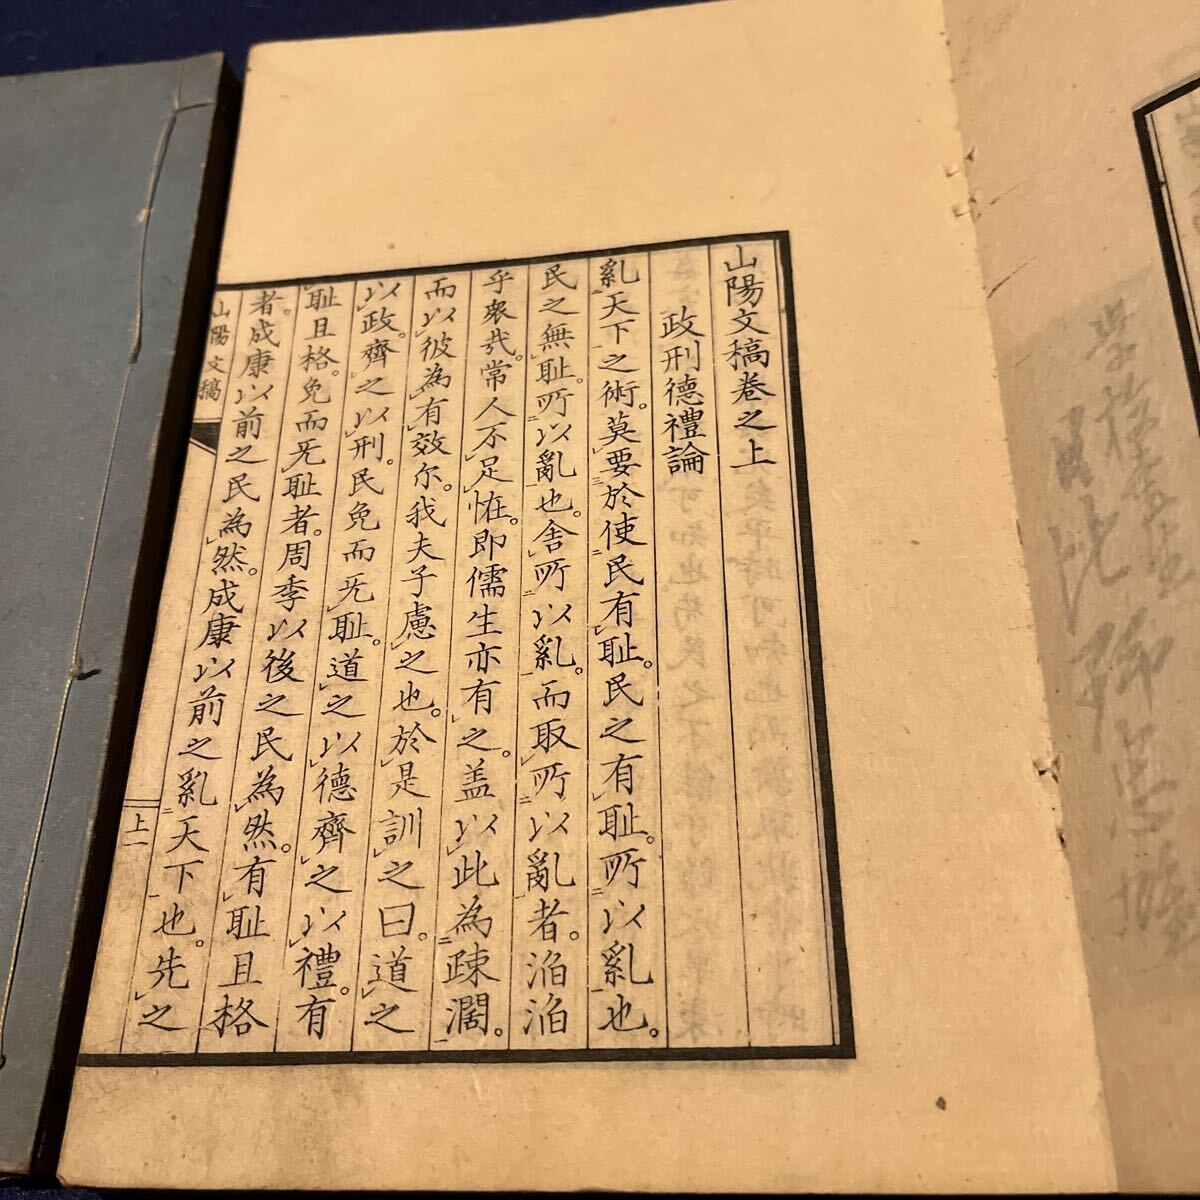 山陽文稿卷之上
政刑德禮論
亂天下之術。莫要於使民有耻。民之有耻。所以亂也。
民之無耻。所以亂也。舍所以亂。而取所以亂者。滔滔
乎衆哉。常人不足恠。即儒生亦有之。盖以此為疎濶。
而以彼為有效尓。我夫子慮之也。於是訓之曰。道之
以政。齊之以刑。民免而无耻。道之以德齊之以禮。有
耻且格。免而无耻者。周季以後之民為然。有耻且格
者。成康以前之民為然。成康以前之亂天下也。先之
山陽文稿
上